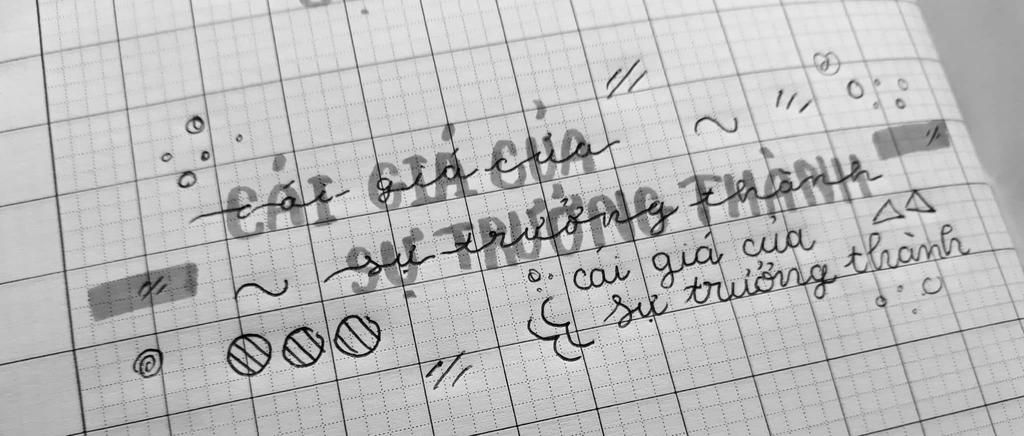 CÁI GIÁ CỦA
cái giá của
SỰ TRƯỞNG THÀNH
sự trưởng thành
cái giá của
sự trưởng thành